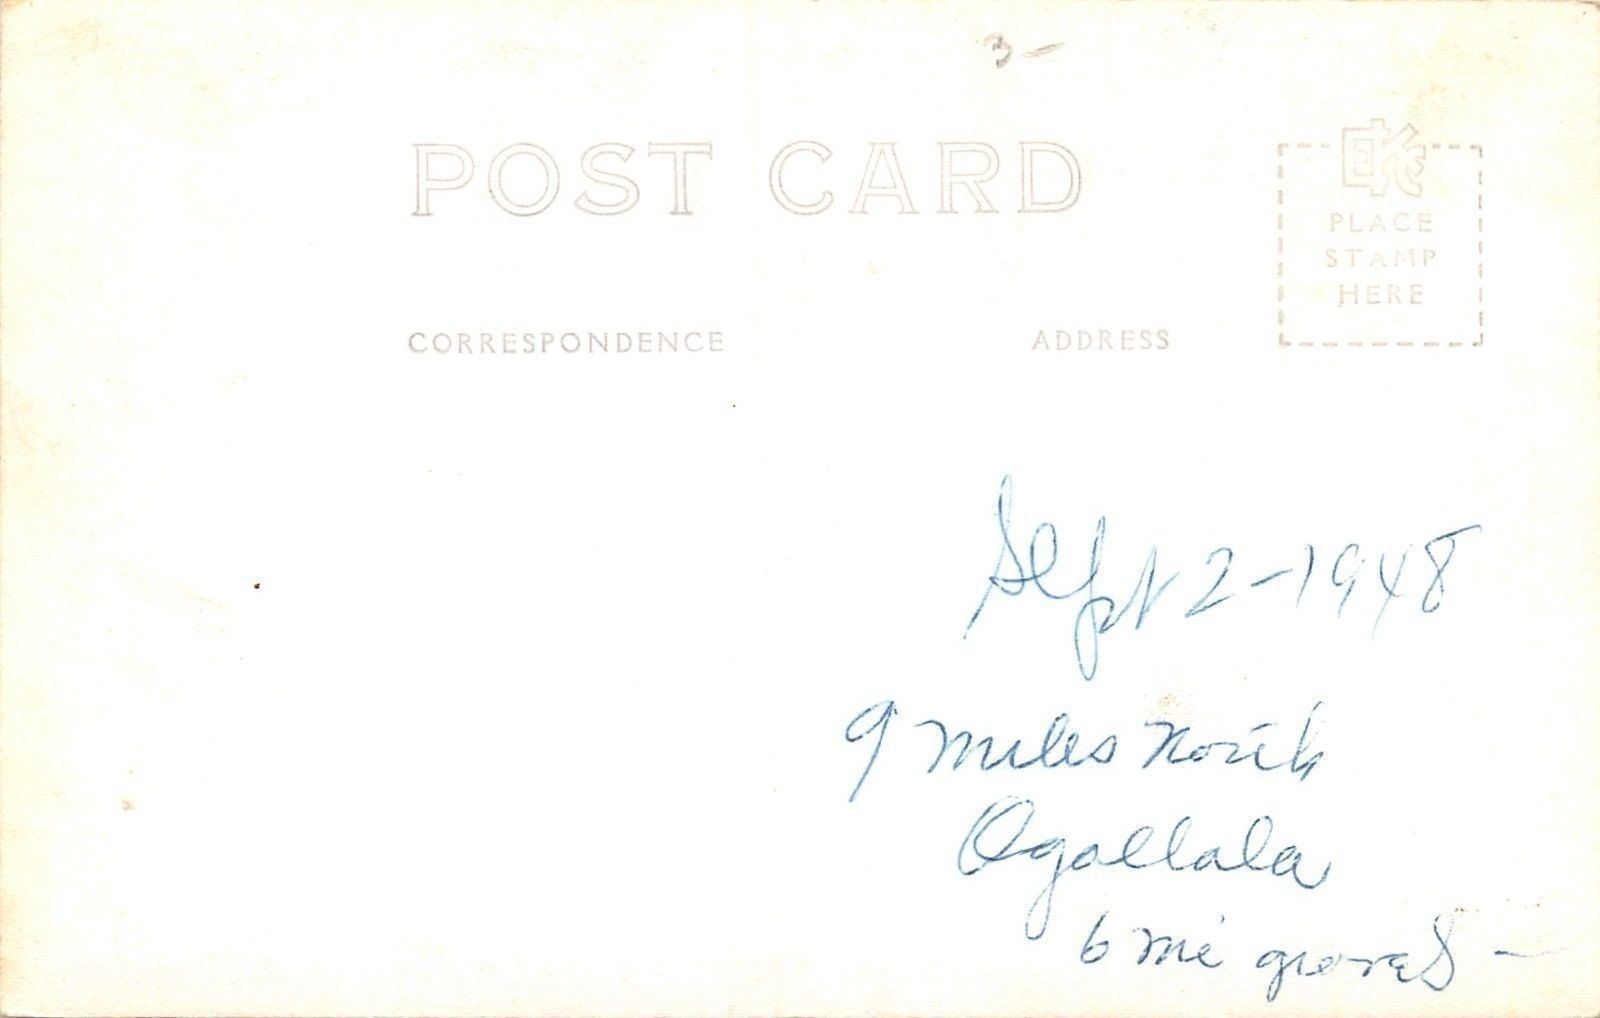 3-
POST CARD
EKC
PLACE
STAMP
HERE
CORRESPONDENCE
ADDRESS
Sept 2-1948
9 miles North
Ogallala
6 mi gravel -